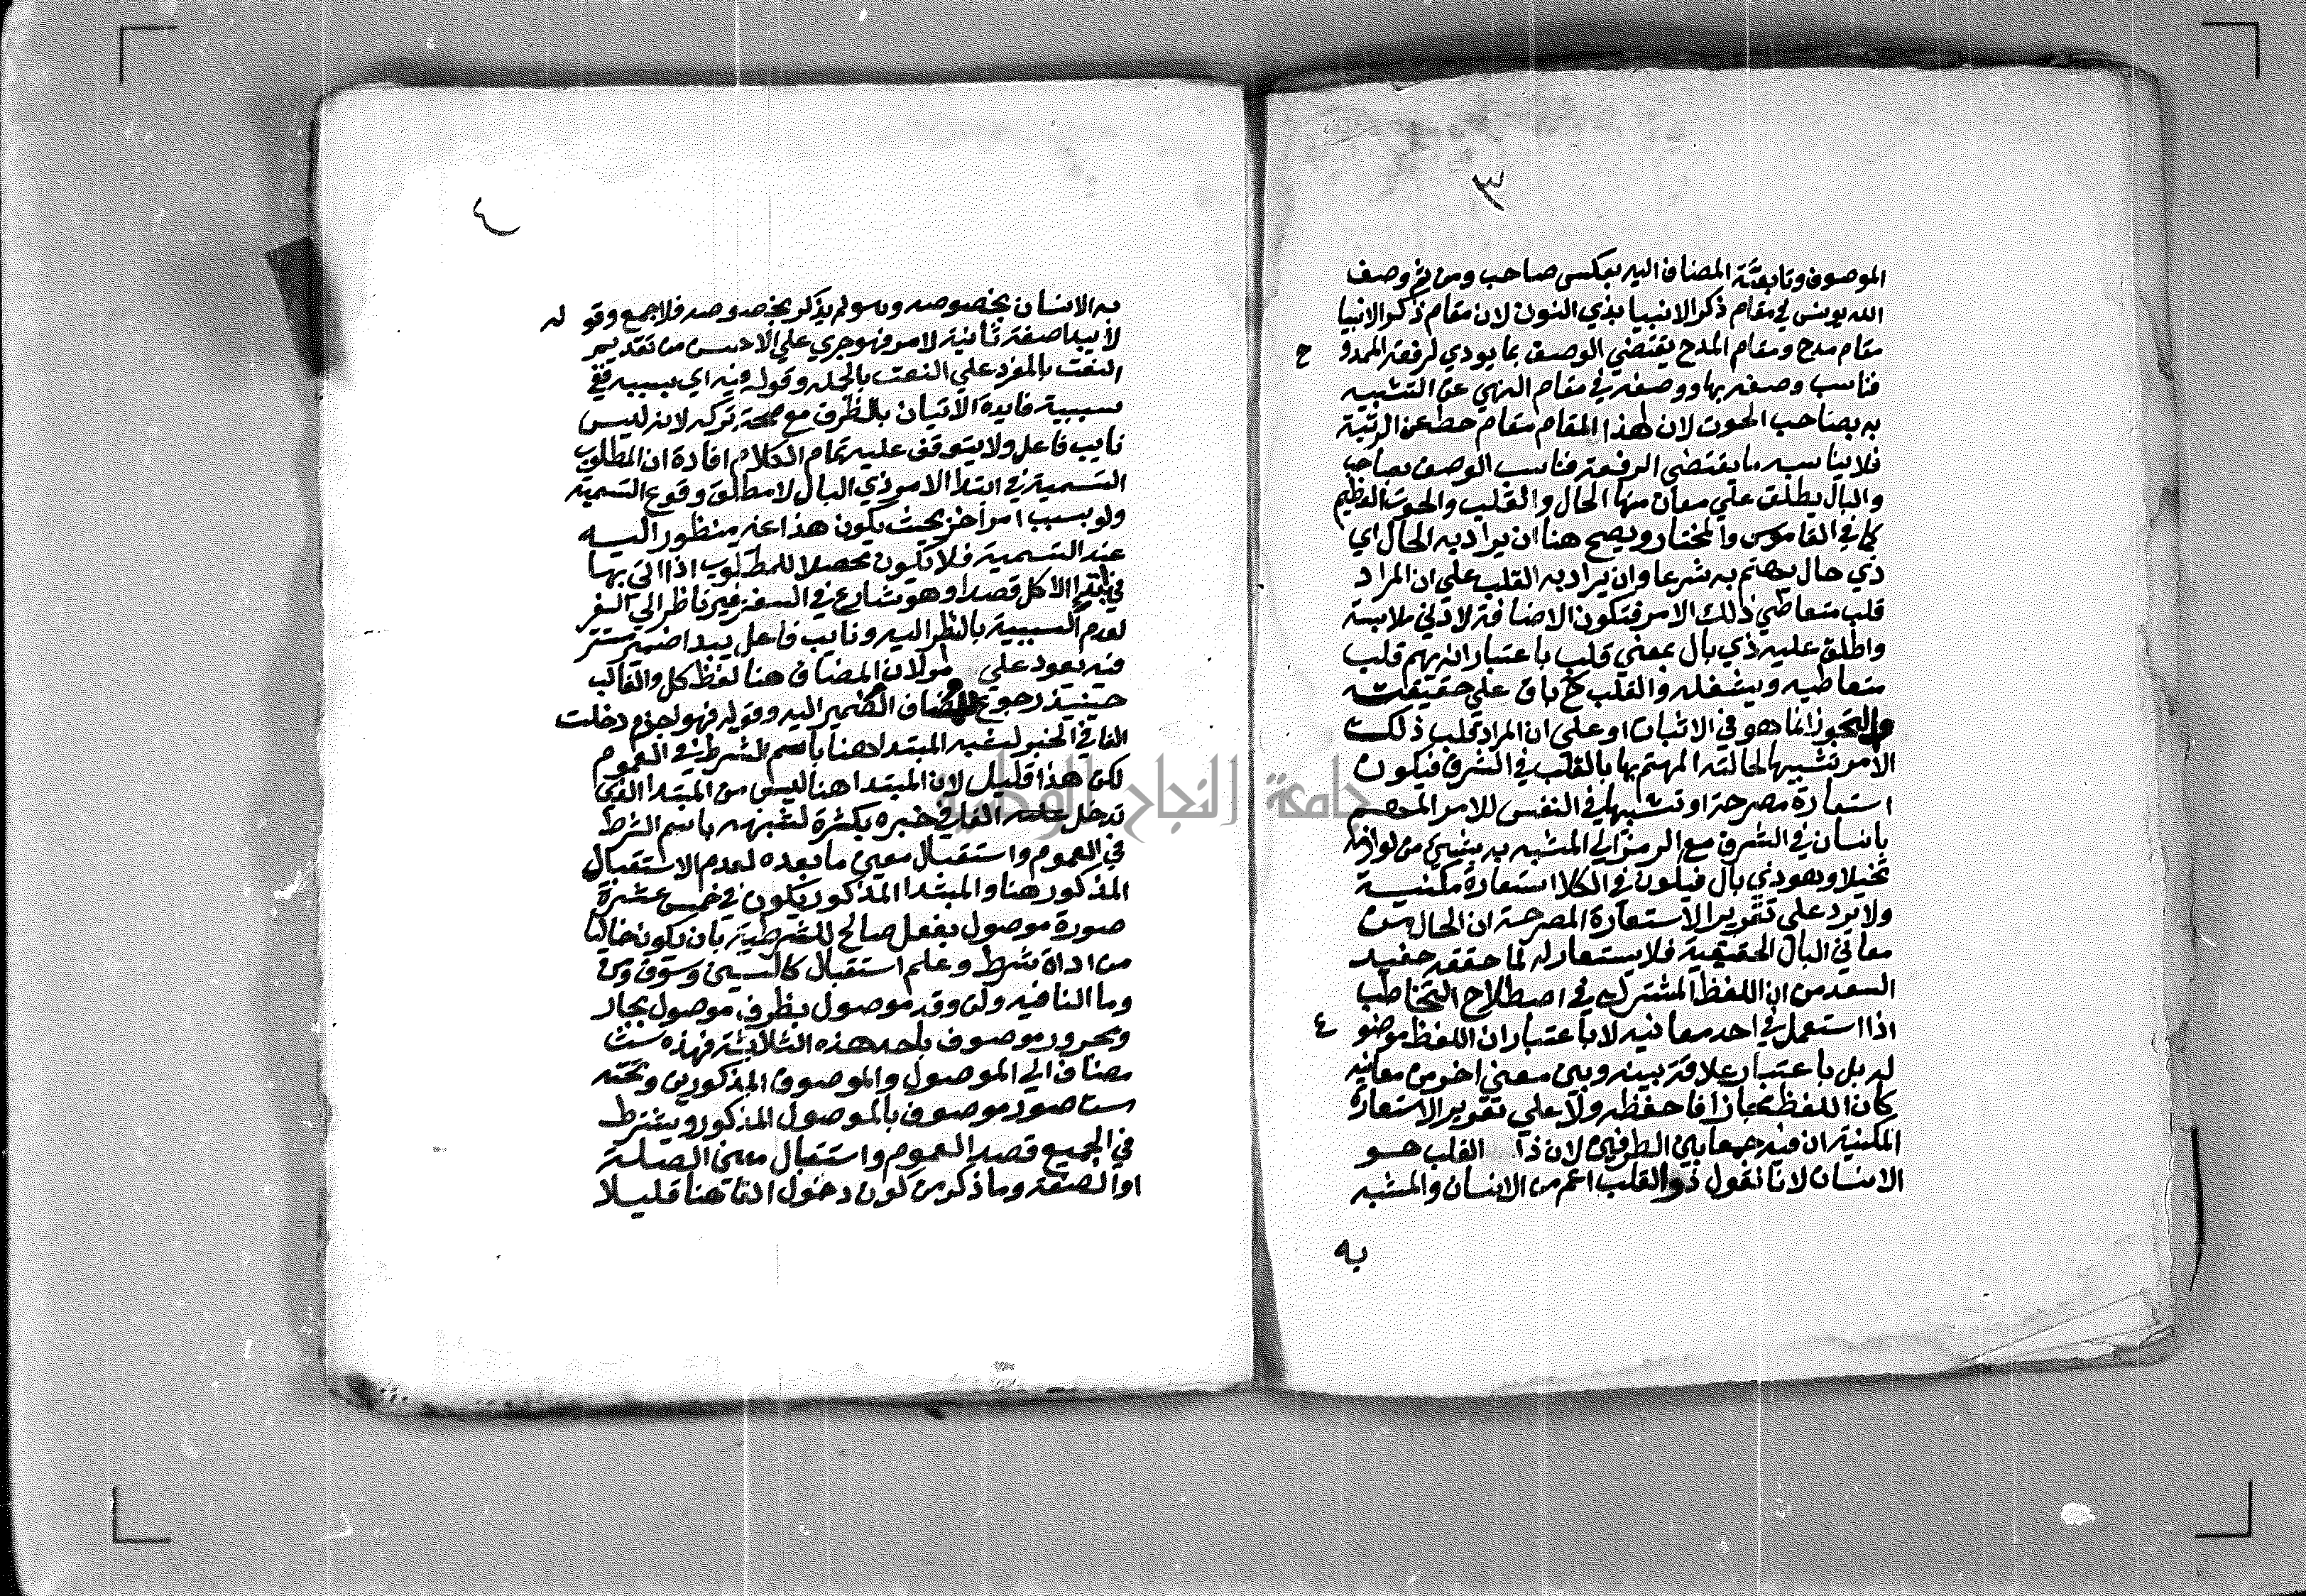 ٣
الموصوف وتابعيته المضاف اليه بعكس صاحب ومن ثم وصف
الله يونس في مقام ذكر الانبيا بذي النون لان مقام ذكر الانبيا
مقام مدح ومقام المدح يقتضي الوصف بما يودي لرفعة الممدوح
فناسب وصفه بها ووصفه في مقام النهي عن التشبيه
به بصاحب الحوت لان هذا المقام مقام حط عن الرتبة
فلا يناسبه ما يقتضي الرفعة فناسب الوصف بصاحب
والبال يطلق علي معان منها الحال والقلب والحوت العظيم
كما في القاموس والمختار ويصح هنا ان يراد به الحال اي
ذي حال يهتم به شرعا وان يراد به القلب علي ان المراد
قلب متعاطي ذلك الامر فتكون الاضافة لادني ملابسة
واطلق عليه ذي بال بمعني قلب باعتبار انه يهم قلب
متعاطيه ويشغله والقلب ح باق علي حقيقته
والتجوز انما هو في الاثبات او علي ان المراد قلب ذلك
الامر تشبيها لحالته المهتم بها بالقلب في الشرف فيكون
استعارة مصرحة او تشبيها في النفس للامر المهم
بانسان في الشرف مع الرمز الي المشبه به بشي من لوازمه
تخيلا وهو ذي بال فيكون في الكلا استعارة مكنية
ولا يرد علي تقرير الاستعارة المصرحة ان الحال من
معاني البال الحقيقية فلا يستعار له لما حققه حفيد
السعد من ان اللفظ المشترك في اصطلاح التخاطب
اذا استعمل في احد معانيه لا باعتبار ان اللفظ موضوع
له بل باعتبار علاقة بينه وبين معني اخر من معانيه
كان اللفظ مجازا فاحفظه ولا علي تقرير الاستعارة
المكنية ان فيه جمعا بين الطرفين لان ذا القلب هو
الانسان لانا نقول ذو القلب اعم من الانسان والمشبه
به
٤
به الانسان بخصوصه وهو لم يذكر بخصوصه فلا جمع وقوله
لا يبدا صفة ثانية لامر فهو جري علي الاحسن من تقديم
النعت بالمفرد علي النعت بالجملة وقوله فيه اي بسببه ففي
سببية فايدة الاتيان بالظرف مع صحة تركه لانه ليس
نايب فاعل ولا يتوقف عليه تمام الكلام افادة ان المطلوب
التسمية في ابتدا الامر ذي البال لا مطلق وقوع التسمية
ولو بسبب امر اخر بحيث يكون هذا عنه منظور اليه
عند التسمية فلا تكون محصلا للمطلوب اذا اتي بها
في ابتدا الاكل قصدا وهو شارع في السفر غير ناظر الي السفر
لعدم السببية بالنظر اليه ونايب فاعل يبدا ضمير مستتر
فيه يعود علي امر لان المضاف هنا لفظ كل والغالب
حينيذ رجوع الضمير للمضاف اليه وقوله فهو اجذم دخلت
الفا في الخبر لشبه المبتدا هنا باسم الشرط في العموم
لكن هذا قليل لان المبتدا هنا ليس من المبتدا الذي
تدخل عليه الفا في خبره بكثرة لشبهه باسم الشرط
في العموم واستقبال معني ما بعده لعدم الاستقبال
المذكور هنا والمبتدا المذكور يكون في خمس عشرة
صورة موصول بفعل صالح للشرطية بان يكون خاليا
من اداة شرط وعلم استقبال كالسين وسوف ومن
وما النافيه ولن وقد موصول بظرف موصول بجار
ومجرور موصوف باحد هذه الثلاثة فهذه ست
مضاف الي الموصول والموصوف المذكورين وتحته
ست صور موصوف بالموصول المذكور ويشترط
في الجميع قصد العموم واستقبال معني الصلة
او الصفة وما ذكر من كون دخول الفا هنا قليلا
جامعة النجاح الوطنية